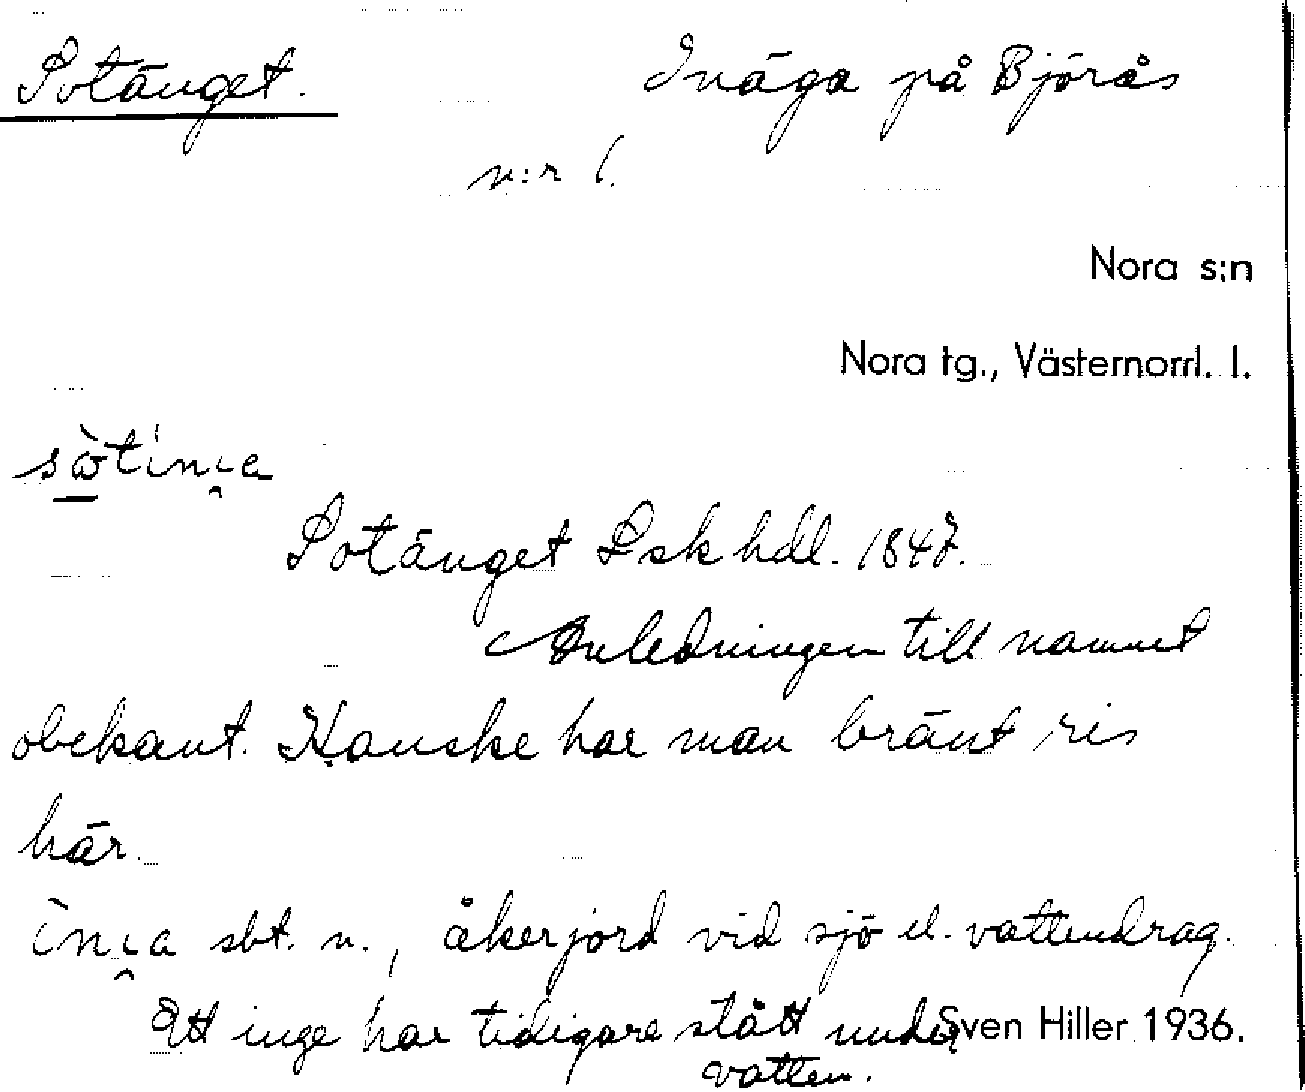 Sotänget.
Inäga på Björås
n:r 1.
Nora s:n
Nora tg., Västernorrl. l.
Sotänget Lsk hdl. 1847.
Anledningen till namnet
obekant. Kanske har man bränt ris
här.
sbt. n., åkerjord vid sjö el. vattendrag.
Ett inge har tidigare stått under
vatten.
Sven Hiller 1936.